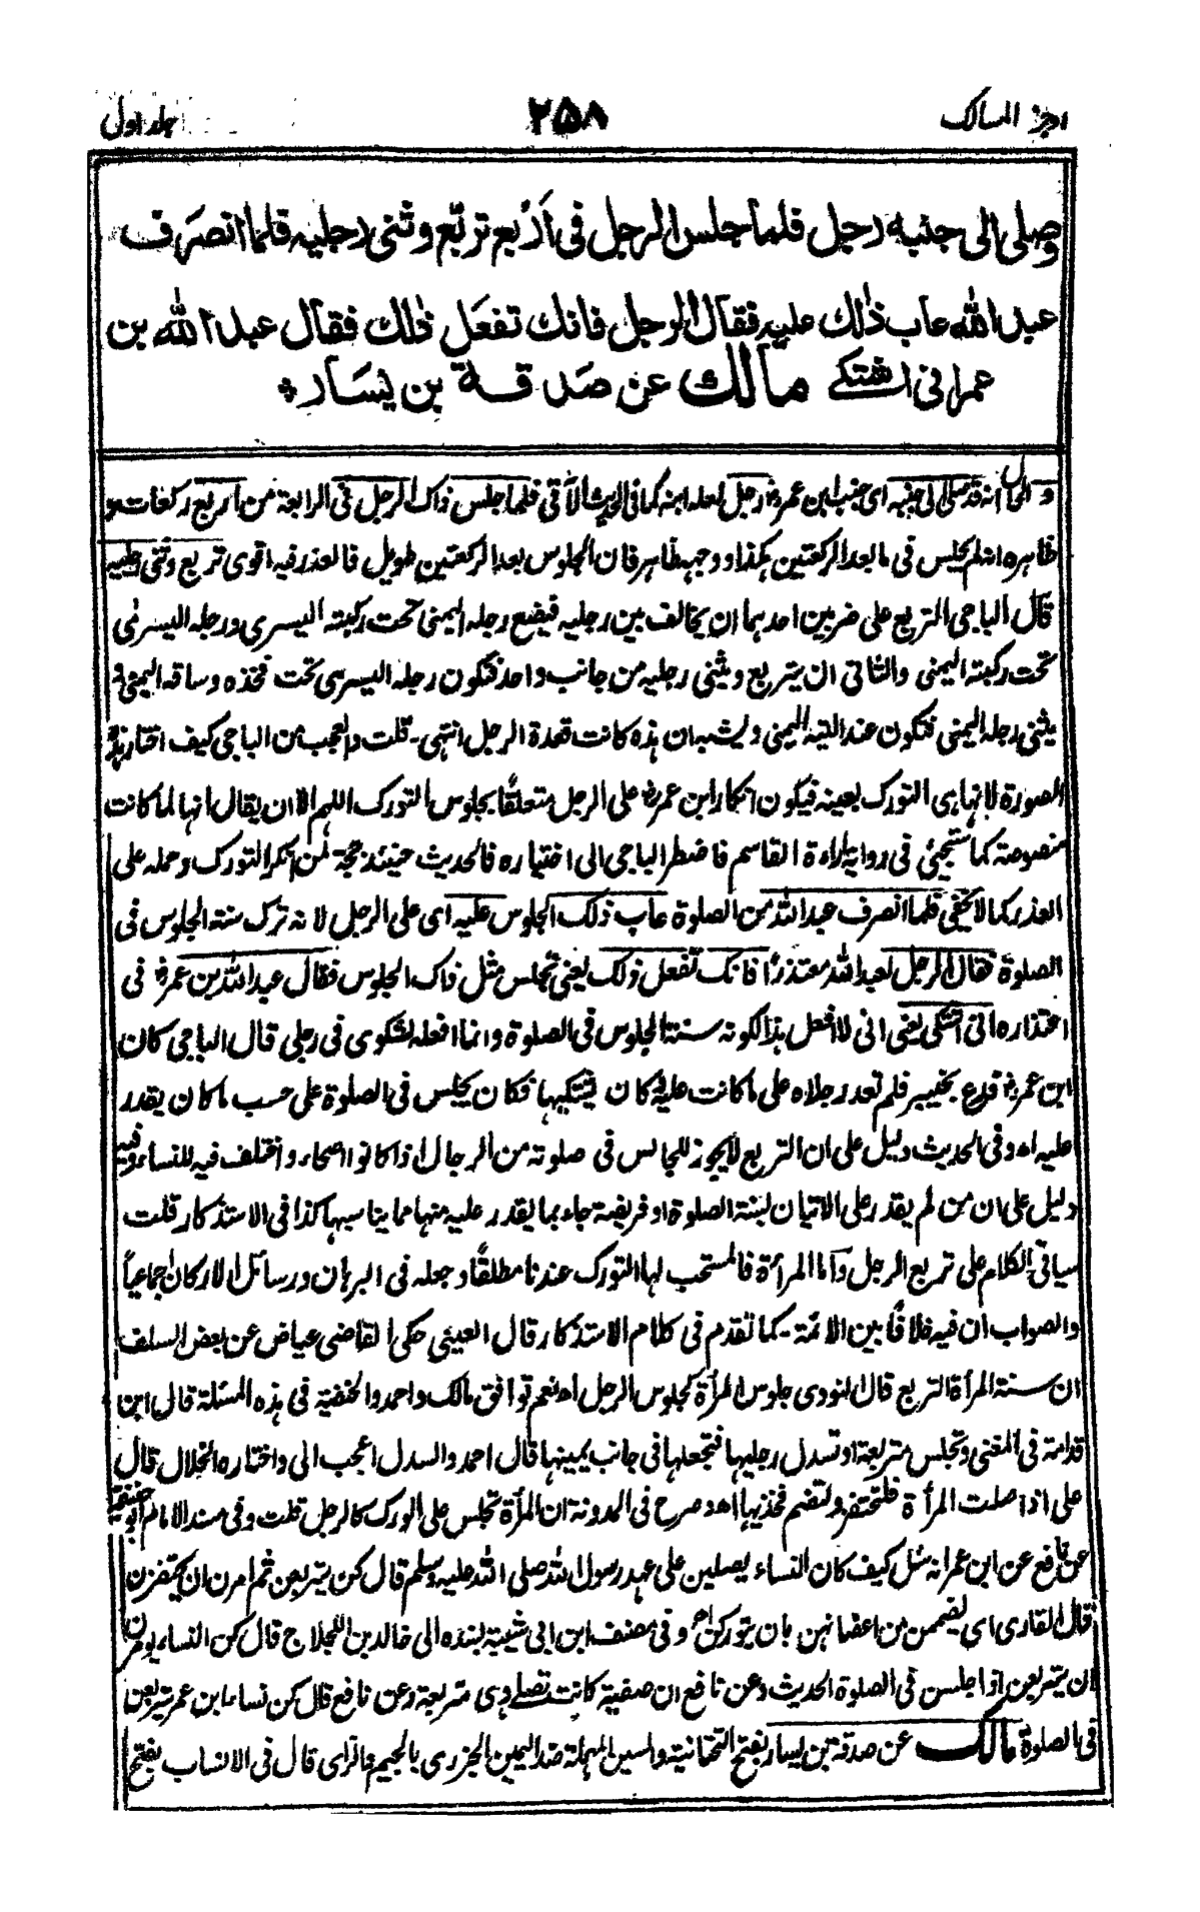 اوجز المسالک
۲۵۸
جلد اول
وصلى الى جنبه رجل فلما جلس الرجل فى اَرْبع تربّع وثنى رجليه فلما انصَرَف
عبد الله عاب ذٰلك عليه فقال الرجل فانك تفعَل ذٰلك فقال عبد الله بن
عمر انى اشتكے مَالك عن صَدقة بن يسَار
و الحال انه قد صلى الى جنبه اى جنب ابن عمرؓ رجل لعله ابنه كما فى الحديث الآتى فلما جلس ذاك الرجل فى الرابعة من اربع ركعات و
ظاهره انه لم يجلس فى ما بعد الركعتين هكذا ووجهه ظاهر فان الجلوس بعد الركعتين طويل فالعذر فيه اقوى تربع وثنى رجليه
قال الباجى التربع على ضربين احدهما ان يخالف بين رجليه فيضع رجله اليمنى تحت ركبته اليسرى ورجله اليسرىٰ
تحت ركبته اليمنى والثانى ان يتربع ويثنى رجليه من جانب واحد فتكون رجله اليسرى تحت فخذه وساقه اليمنى و
يثنى رجله اليمنى فتكون عند اليته اليمنى ويشبه ان هذه كانت قعدة الرجل انتهى۔ قلت والعجب من الباجى كيف اختار هذه
الصورة لانها هى التورك بعينه فيكون انكار ابن عمرؓ على الرجل متعلقًا بجلوس التورك اللهم الا ان يقال انها لما كانت
منصوصة كما ستجيئ فى رواية اراءة القاسم فاضطر الباجى الى اختياره فالحديث حينئذ حجة لمن انكر التورك وحمله على
العذر كما لا يخفى فلما انصرف عبد الله من الصلوة عاب ذلك الجلوس عليه اى على الرجل لانه ترك سنة الجلوس فى
الصلوة فقال الرجل لعبد الله معتذرًا فانك تفعل ذلك يعنى تجلس مثل ذاك الجلوس فقال عبد الله بن عمرؓ فى
اعتذاره انى اشتكى يعنى انى لا افعل هذا لكونه سنة الجلوس فى الصلوة وانما افعله لشكوى فى رجلى قال الباجى كان
ابن عمرؓ فدع بخيبر فلم تعد رجلاه على ما كانت عليه فكان يشتكيها فكان يجلس فى الصلوة على حسب ما كان يقدر
عليه اه وفى الحديث دليل على ان التربع لا يجوز للجالس فى صلوته من الرجال اذا كانوا اصحاء واختلف فيه للنساء وفيه
دليل على ان من لم يقدر على الاتيان لسنة الصلوة او فريضة جاء بما يقدر عليه منها مما يناسبها كذا فى الاستذكار قلت
سياتى الكلام على تربع الرجل وآما المرأة فالمستحب لها التورك عندنا مطلقًا وجعله فى البرهان ورسائل الاركان اجماعياً
والصواب ان فيه خلافًا بين الائمة۔ كما تقدم فى كلام الاستذكار قال العينى حكى القاضى عياض عن بعض السلف
ان سنة المرأة التربع قال النووى جلوس المرأة كجلوس الرجل اه نعم توافق مالك واحمد والحنفية فى هذه المسئلة قال ابن
قدامة فى المغنى وتجلس متربعة او تسدل رجليها فتجعلها فى جانب يمينها قال احمد والسدل اعجب الى واختاره الخلال قال
على اذا صلت المرأة فلتحتفز ولتضم فخذيها اه وصرح فى المدونة ان المرأة تجلس على الورك كالرجل قلت وفى مسند الامام ابى حنيفة
عن نافع عن ابن عمر انه سئل كيف كان النساء يصلين على عهد رسول الله صلى الله عليه وسلم قال كن يتربعن ثم امرن ان يحتفزن
قال القارى اى يضممن من اعضائهن بان يتوركن اه وفى مصنف ابن ابى شيبة بسنده الى خالد بن اللجلاج قال كن النساء يومرن
ان يتربعن اذا جلسن فى الصلوة الحديث وعن نافع ان صفية كانت تصلے وهى متربعة وعن نافع قال كن نساء ابن عمر يتربعن
فى الصلوة مالك عن صدقة بن يسار بفتح التحتانية والسين المهملة ضد اليمين الجزرى بالجيم فالزاى قال فى الانساب بفتح